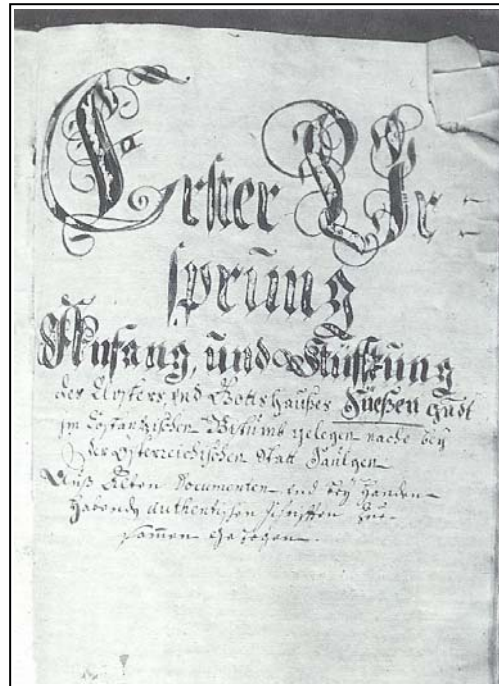 Erster Vr=
sprung
Anfang, und Stüfftung
des Closters vnd Gottshaußes Süeßen
im Costantzischen Bistumb gelegen nache bey
der Österreichischen Statt Saulgen
Auß Alten Documenten vnd bey Handen
Habendt authentischen schrifften Zue=
samen gezogen.